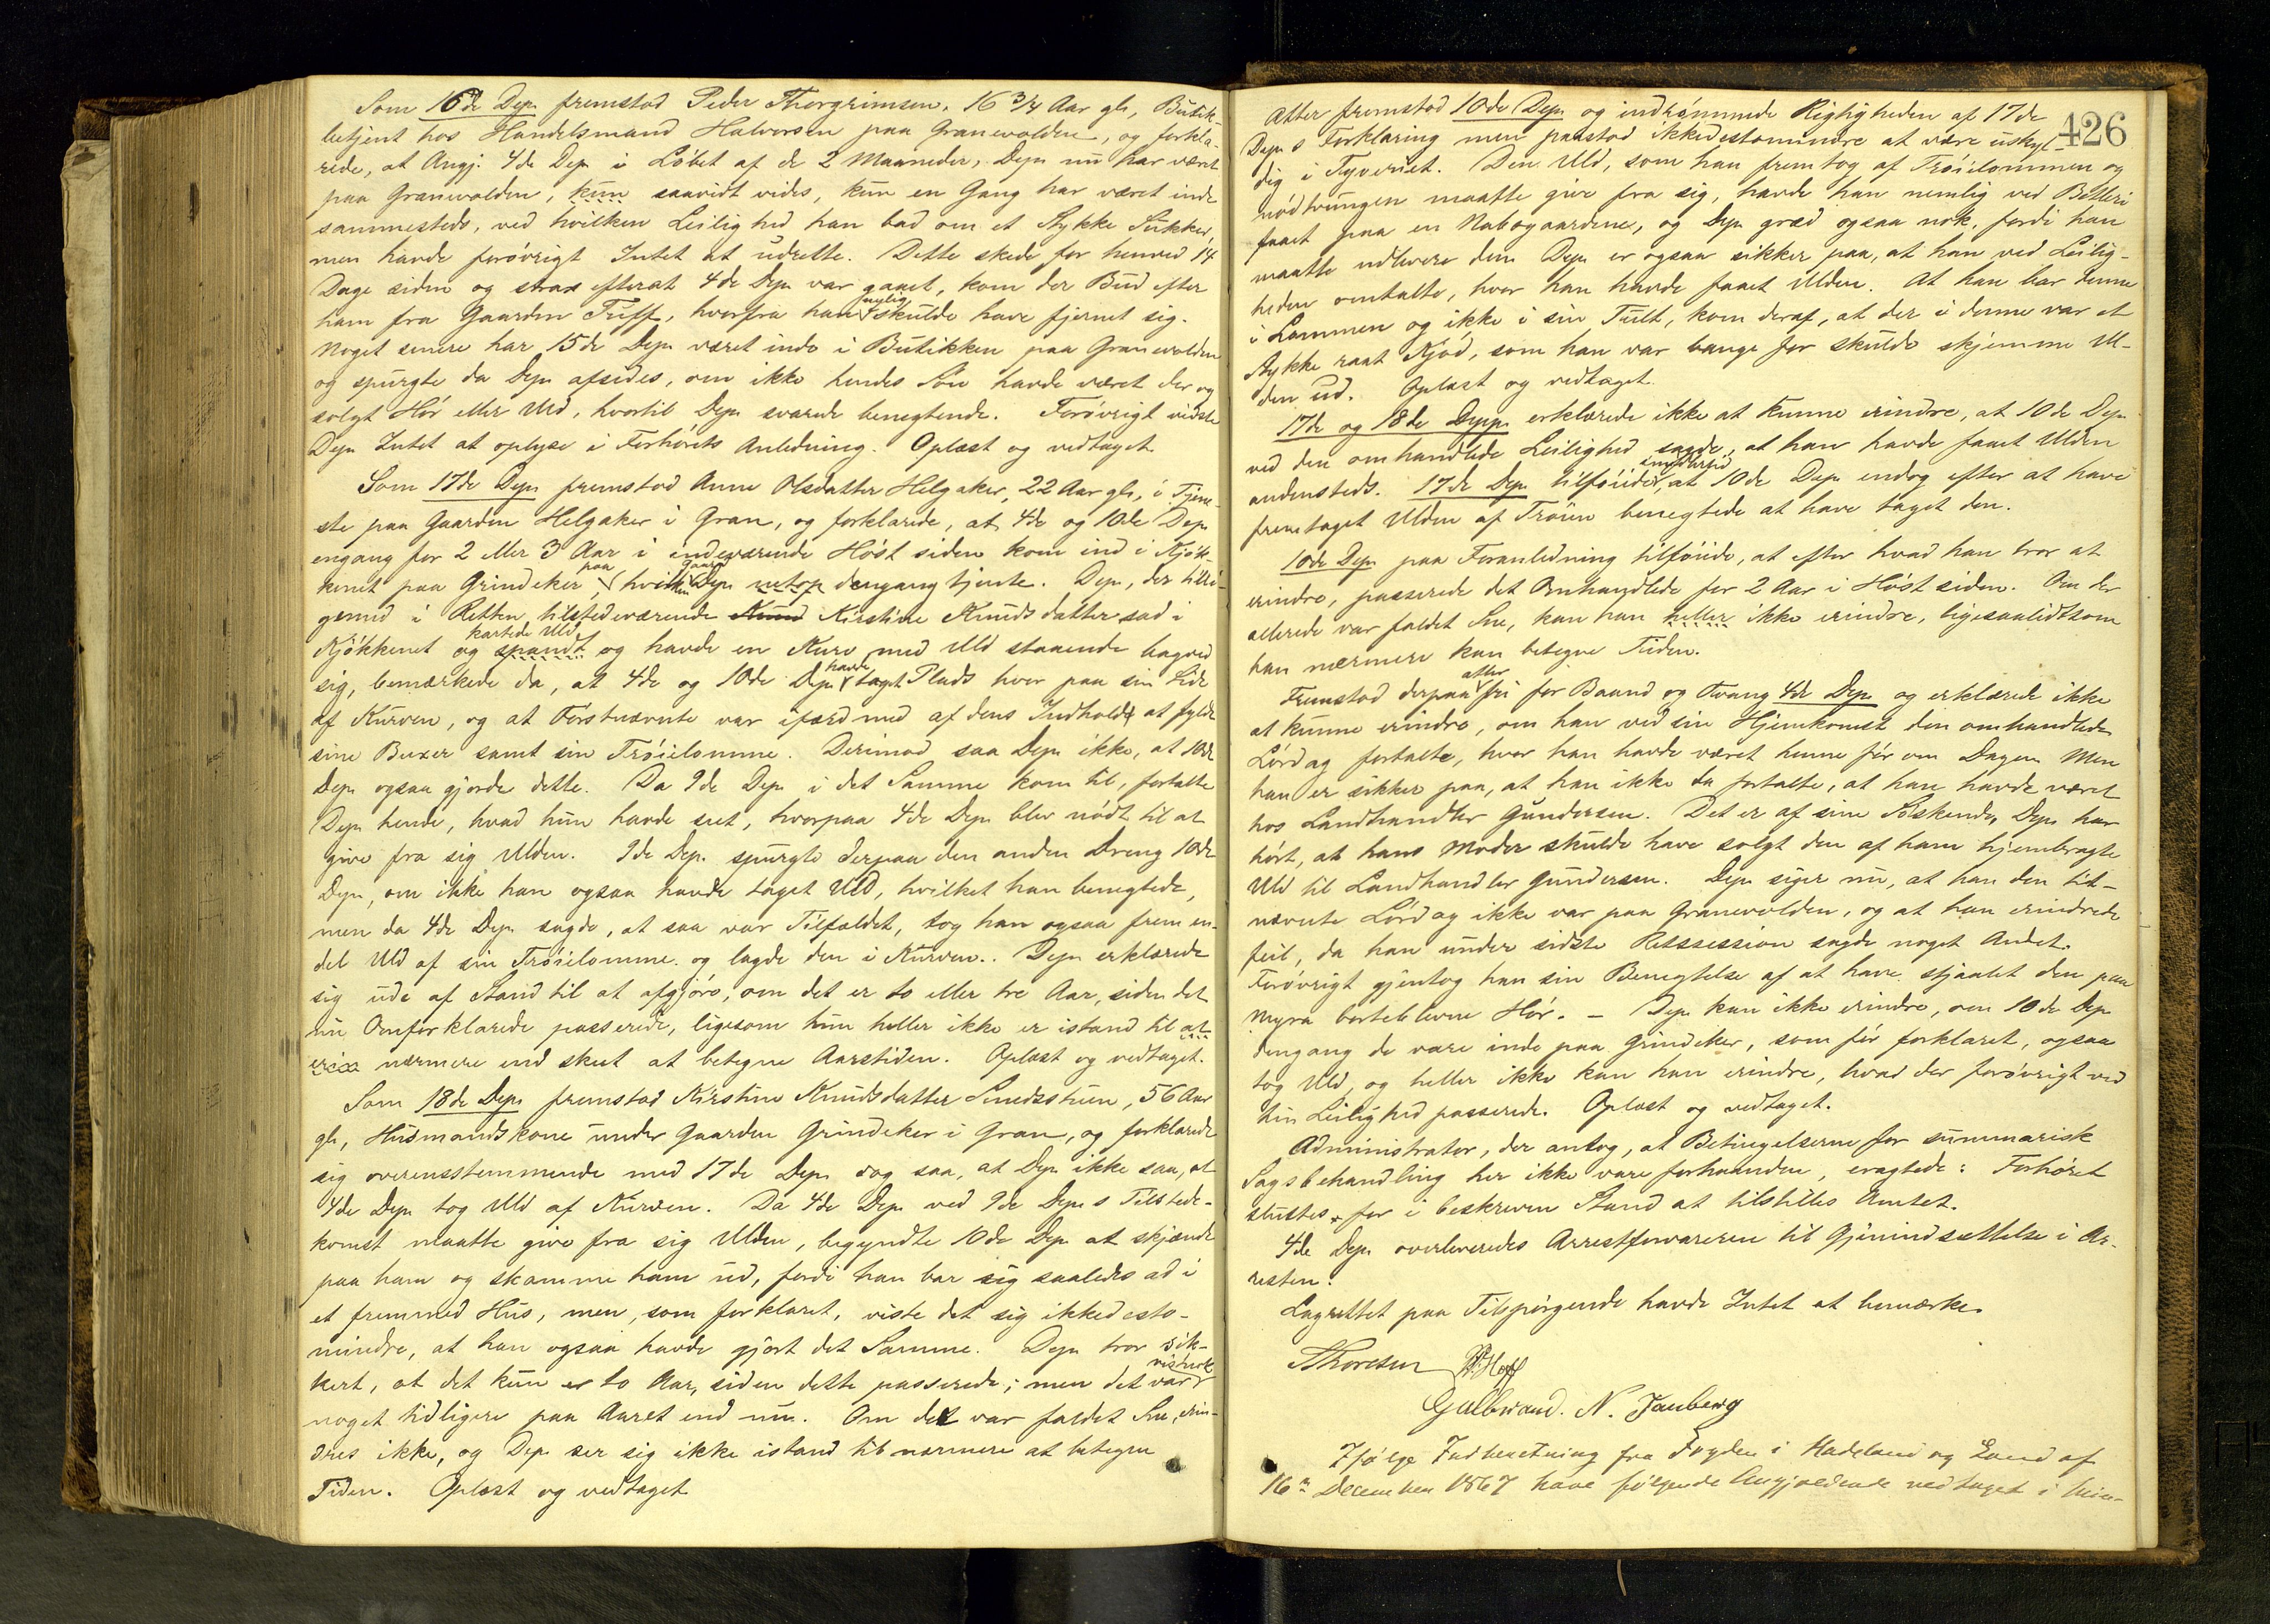 Som 16de Dep. fremstod Peder Thorgrimsen, 16 3/4 Aar gl., Butik-
betjent hos Handelsmand Halvorsen paa Granevolden, og forkla-
rede, at Angj. 4de Dep. i Løbet af de 2 Maaneder, Dep. nu har været
paa Granevolden, kun saavidt vides, kun en Gang har været inde
sammesteds, ved hvilken Leilighed han bad om et Stykke Sukker,
men havde forøvrigt Intet at udrette. Dette skede for henved 14
Dage siden og strax efterat 4de Dep. var gaaet, kom der Bud efter
ham fra Gaarden Tuff, hvorfra han nylig skulde have fjernet sig.
Noget senere har 15de Dep. været inde i Butikken paa Granevolden
og spurgte da Dep. afsides, om ikke hendes Søn havde været der og
solgt Hør eller Uld, hvortil Dep. svarede benegtende. Forøvrigt vidste
Dep. Intet at oplyse i Forhørets Anledning. Oplæst og vedtaget.
Som 17de Dep. fremstod Anne Olsdatter Helgaker, 22 Aar gl., i Tjene-
ste paa Gaarden Helgaker i Gran, og forklarede, at 4de og 10de Dep.
engang for 2 eller 3 Aar i indeværende Høst siden kom ind i Kjøk-
kenet paa Grindeker, paa hvilken Gaard Dep. netop dengang tjente. Dep., der tilli-
gemed i Retten tilstedeværende Knud Kirstine Knudsdatter sad i
Kjøkkenet og kartede Uld spandt og havde en Kurv med Uld staaende bagved
sig, bemærkede da, at 4de og 10de Dep. havde taget Plads hver paa sin Side
af Kurven, og at Førstnævnte var ifærd med af dens Indhold at fylde
sine Buxer samt sin Trøielomme. Derimod saa Dep. ikke, at 10de
Dep. ogsaa gjorde dette. Da 9de Dep. i det Samme kom til, fortalte
Dep. hende, hvad hun havde seet, hvorpaa 4de Dep. blev nødt til at
give fra sig Ulden. 9de Dep. spurgte derpaa den anden Dreng 10de
Dep., om ikke han ogsaa havde taget Uld, hvilket han benegtede,
men da 4de Dep. sagde, at saa var Tilfældet, tog han ogsaa frem en-
del Uld af sin Trøielomme og lagde den i Kurven. Dep. erklærede
sig ude af Stand til at afgjøre, om det er to eller tre Aar, siden det
nu Omforklarede passerede, ligesom hun heller ikke er istand til at
nærmere end skeet at betegne Aarstiden. Oplæst og vedtaget.
Som 18de Dep. fremstod Kirstine Knudsdatter Smedsstuen, 56 Aar
gl., Husmandskone under Gaarden Grindeker i Gran, og forklarede
sig overensstemmende med 17de Dep. dog saa, at Dep. ikke saa, at
4de Dep. tog Uld af Kurven. Da 4de Dep. ved 9de Dep.s Tilstede-
komst maatte give fra sig Ulden, begyndte 10de Dep. at skjænde
paa ham og skamme ham ud, fordi han bar sig saaledes ad i
et fremmed Hus, men, som forklaret, viste det sig ikkedesto-
mindre, at han ogsaa havde gjort det Samme. Dep. tror sik-
kert, at det kun er to Aar, siden dette passerede; men det var vistnok
noget tidligere paa Aaret end nu. Om det var faldet Sne, erin-
dres ikke, og Dep. ser sig ikke istand til nærmere at betegne
Tiden. Oplæst og vedtaget
426
Atter fremstod 10de Dep. og indrømmede Rigtigheden af 17de
Dep.s Forklaring men paastod ikkedestomindre at være uskyl-
dig i Tyveriet. Den Uld, som han fremtog af Trøielommen og
nødtvungen maatte give fra sig, havde han nemlig ved Betleri
faaet paa en Nabogaardene, og Dep. græd ogsaa nok, fordi han
maatte udlevere den. Dep. er ogsaa sikker paa, at han ved Leilig-
heden omtalte, hvor han havde faaet Ulden. At han bar denne
i Lommen og ikke i sin Tult, kom deraf, at der i denne var et
Stykke raat Kjød, som han var bange for skulde skjemme Ul-
den ud. Oplæst og vedtaget.
17de og 18de Depp. erklærede ikke at kunne erindre, at 10de Dep.
ved den omhandlede Leilighed sagde, at han havde faaet Ulden
andensteds. 17de Dep. tilføiede imidlertid, at 10de Dep. endog efter at have
fremtaget Ulden af Trøien benegtede at have taget den.
10de Dep. paa Foranledning tilføiede, at efter hvad han tror at
erindre, passerede det Omhandlede for 2 Aar i Høst siden. Om der
allerede var faldet Sne, kan han heller ikke erindre, ligesaalidtsom
han nærmere kan betegne Tiden.
Fremstod derpaa atter fri for Baand og Tvang 4de Dep. og erklærede ikke
at kunne erindre, om han ved sin Hjemkomst den omhandlede
Lørdag fortalte, hvor han havde været henne før om Dagen. Men
han er sikker paa, at han ikke da fortalte, at han havde været
hos Landhandler Gundersen. Det er af sine Søskende, Dep. har
hørt, at hans Moder skulde have solgt den af ham hjembragte
Uld til Landhandler Gundersen. Dep. siger nu, at han den tit-
nævnte Lørdag ikke var paa Granevolden, og at han erindrede
feil, da han under sidste Retssession sagde noget Andet.
Forøvrigt gjentog han sin Benegtelse af at have stjaalet den paa
Myra bortblevne Hør. – Dep. kan ikke erindre, om 10de Dep.
dengang de vare inde paa Grindeker, som før forklaret, ogsaa
tog Uld, og heller ikke kan han erindre, hvad der forøvrigt ved
hin Leilighed passerede. Oplæst og vedtaget.
Administrator, der antog, at Betingelserne for summarisk
Sagsbehandling her ikke vare forhaanden, eragtede: Forhøret
sluttes for i beskreven Stand at tilstilles Amtet.
4de Dep. overleveredes Arrestforvareren til Gjenindsættelse i Ar-
resten.
Lagrettet paa Tilspørgende havde Intet at bemærke.
Thoresen Hoff
Gulbrand. N. Jauberg
Ifølge Indberetning fra Fogden i Hadeland og Land af
16de December 1867 have følgende Angjældende vedtaget i Min-